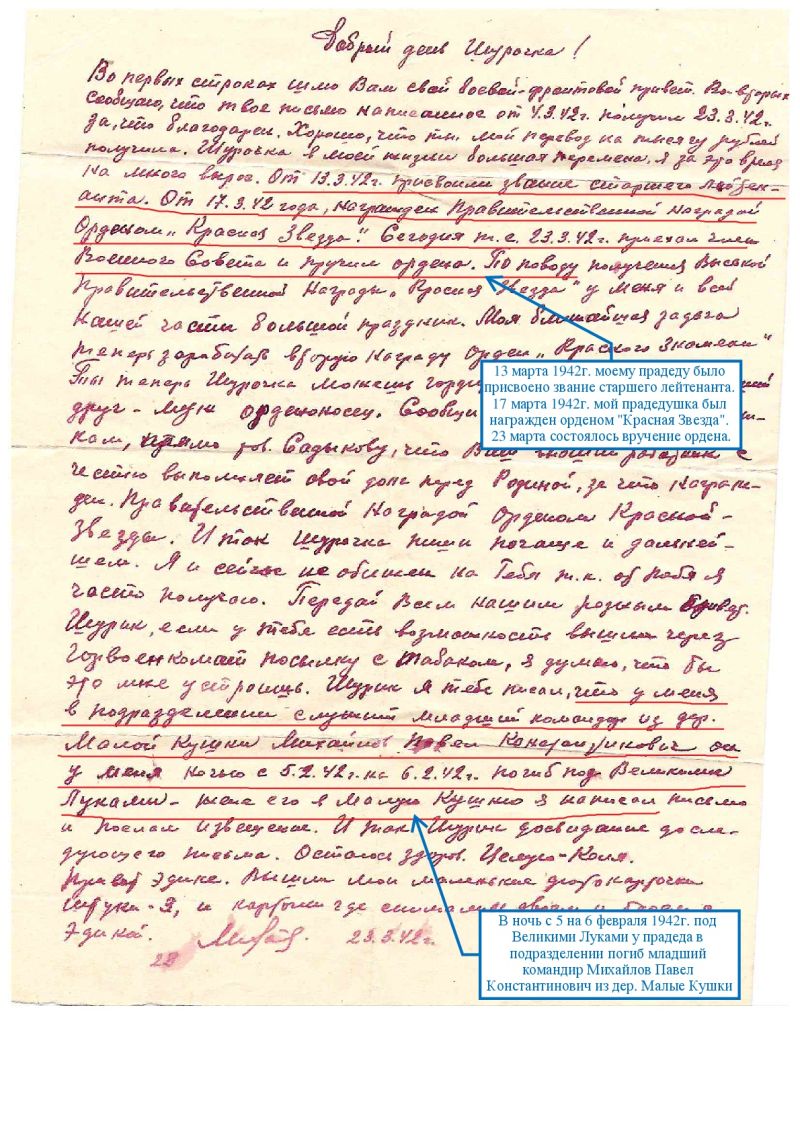 Добрый день Шурочка!
Во первых строках шлю Вам свой боевой-фронтовой привет. Во-вторых
сообщаю, что твое письмо написанное от 4.3.42г. получил 23.3.42г.
за, что благодарен. Хорошо, что ты мой перевод на тысячу рублей
получила. Шурочка в моей жизни большая перемена, я за это время
на много вырос. От 13.3.42г. присвоили звание старшего лейтен-
анта. От 17.3.42 года, награжден Правительственной наградой
Орденом „Красная Звезда". Сегодня т.е. 23.3.42г. приехал член
Военного Совета и вручил ордена. По поводу получения Высокой
Правительственной Награды „Красная Звезда" у меня и всей
нашей части большой праздник. Моя ближайшая задача
теперь заработать вторую награду орден „Красного Знамени"
Ты теперь Шурочка можешь
друг-муж орденоносец. Сообщи
кам, прямо тов. Садыкову, что Ваш бывший работник с
честью выполняет свой долг перед Родиной, за что награж-
ден. Правительственной Наградой Орденом Красной-
Звезды. Итак Шурочка пиши почаще и дальней-
шем. Я и сейчас не обижен на Тебя т.к. от тебя я
часто получаю. Передай всем нашим родным привет.
Шурик, если у тебя есть возможность вышли через
Горвоенкомат посылку с табаком, я думаю, что вы
это мне устроишь. Шурик я тебе писал, что у меня
в подразделении служит младший командир из дер.
Малой Кушки Михайлов Павел Константинович он
у меня ночью с 5.2.42г. на 6.2.42г. погиб под Великими
Луками - жене его в Малую Кушку я написал письмо
и послал извещение. И так Шурик досвидание до сле-
дующего письма. Остаюсь здоров. Целую-Коля.
Привет Эдике. Вышли мои маленькие фотокарточки
штуки-3, и карточки где снимались двоем и
Эдикой. 23.3.42г.
28
13 марта 1942г. моему прадеду было
присвоено звание старшего лейтенанта.
17 марта 1942г. мой прадедушка был
награжден орденом "Красная Звезда".
23 марта состоялось вручение ордена.
В ночь с 5 на 6 февраля 1942г. под
Великими Луками у прадеда в
подразделении погиб младший
командир Михайлов Павел
Константинович из дер. Малые Кушки